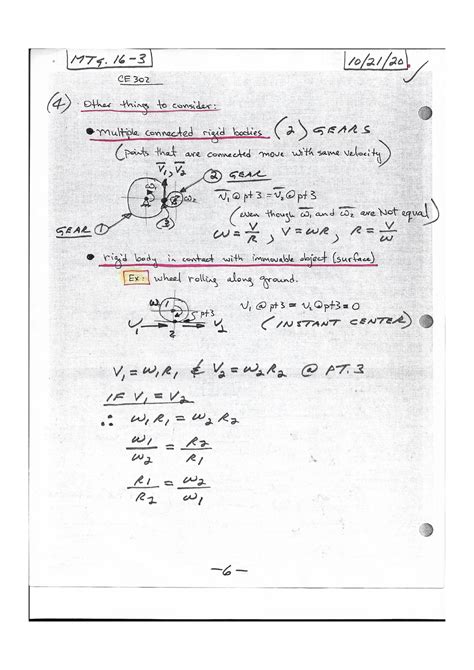 MTG. 16-3
10/21/20
CE 302
(4) Other things to consider:
• multiple connected rigid bodies (2) GEARS
(points that are connected move with same velocity)
V̄₁, V̄₂
② GEAR
ω₁
ω₂
V̄₁@pt3 = V̄₂@pt3
(even though ω̄₁ and ω̄₂ are Not equal)
GEAR ①
③
ω = V/R, V = ωR, R = V/ω
• rigid body in contact with immovable object (surface)
Ex: wheel rolling along ground.
ω 1
pt3
V₁ @pt3 = V₂@pt3 = 0
V₁
2
V₂
(INSTANT CENTER)
V₁ = ω₁R₁ & V₂ = ω₂R₂ @ PT.3
IF V₁ = V₂
∴ ω₁R₁ = ω₂R₂
ω₁/ω₂ = R₂/R₁
R₁/R₂ = ω₂/ω₁
-6-